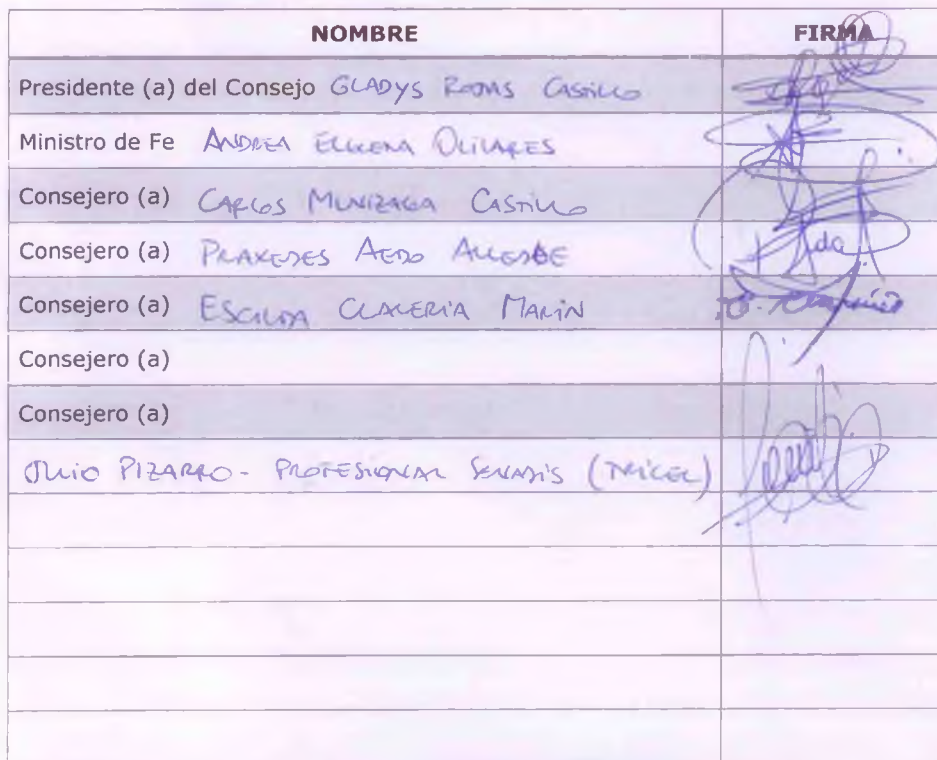 NOMBRE FIRMA
Presidente (a) del Consejo GLADYS ROJAS CASTILLO
Ministro de Fe ANDREA ELGUENA OLIVARES
Consejero (a) CARLOS MUNIZAGA CASTILLO
Consejero (a) PRAXEDES AEDO ALLENDE
Consejero (a) ESCILDA CLAVERIA MARIN
Consejero (a)
Consejero (a)
JULIO PIZARRO - PROFESIONAL SENADIS (TRICEL)